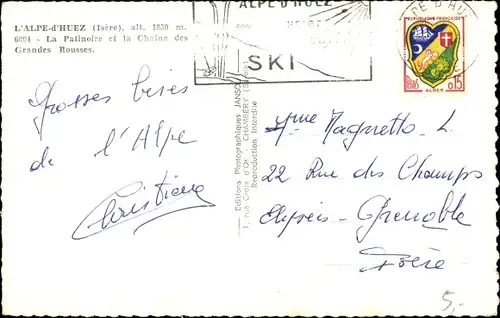 L'ALPE-d'HUEZ (Isère), alt. 1850 m.
6094 - La Patinoire et la Chaîne des
Grandes Rousses.
ALPE-D'HUEZ
SKI
REPUBLIQUE FRANÇAISE
POSTES
0,15
ALGER
Grosses bises
de l'Alpe
Christiane
Editions Photographiques JANSOL
1, rue Croix d'Or - CHAMBÉRY
Reproduction Interdite
Mme Magnetto L.
22 Rue des Champs
Elysées - Grenoble
Isère
5,-